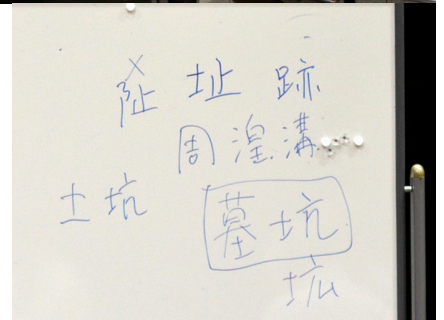 阯 址 跡
周湟溝
土坑
墓坑
坑